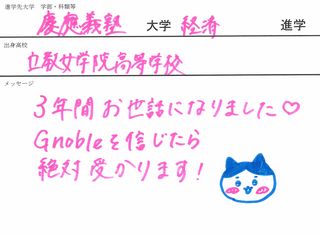 進学先大学 学部・科類等
慶應義塾 大学 経済 進学
出身高校
立教女学院高等学校
メッセージ
3年間お世話になりました♡
Gnobleを信じたら
絶対受かります!